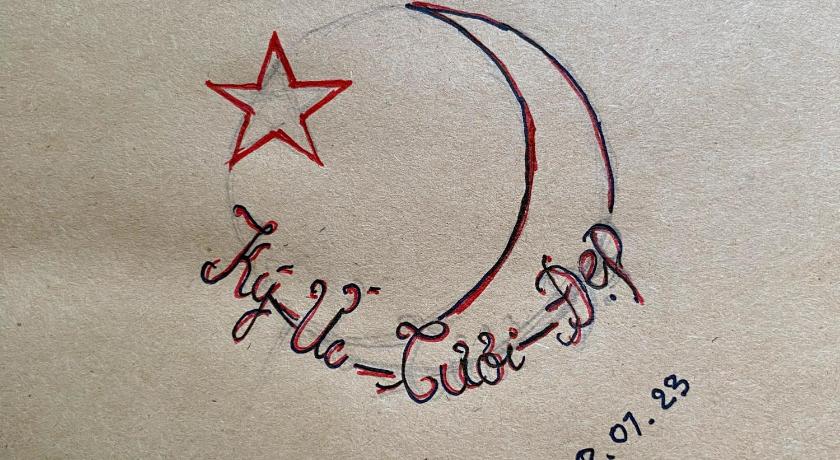 Ký-Ức-Tươi-Đẹp
.01.23